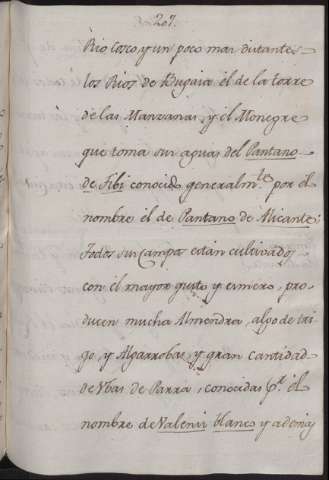 207.
Rio Cosco y un poco mas distantes
los Rios de Bugaia el de la torre
de las Manzanas, y el Monegre
que toma sus aguas del Pantano
de Tibi conocido generalm.te por el
nombre el de Pantano de Alicante:
Todos sus Campos están cultivados
con el mayor gusto y esmero, pro-
ducen mucha Almendra, algo de tri-
go, y Algarrobas, y gran cantidad
de Ubas de Parra, conocidas p.r el
nombre de Valensi blanco y ademas